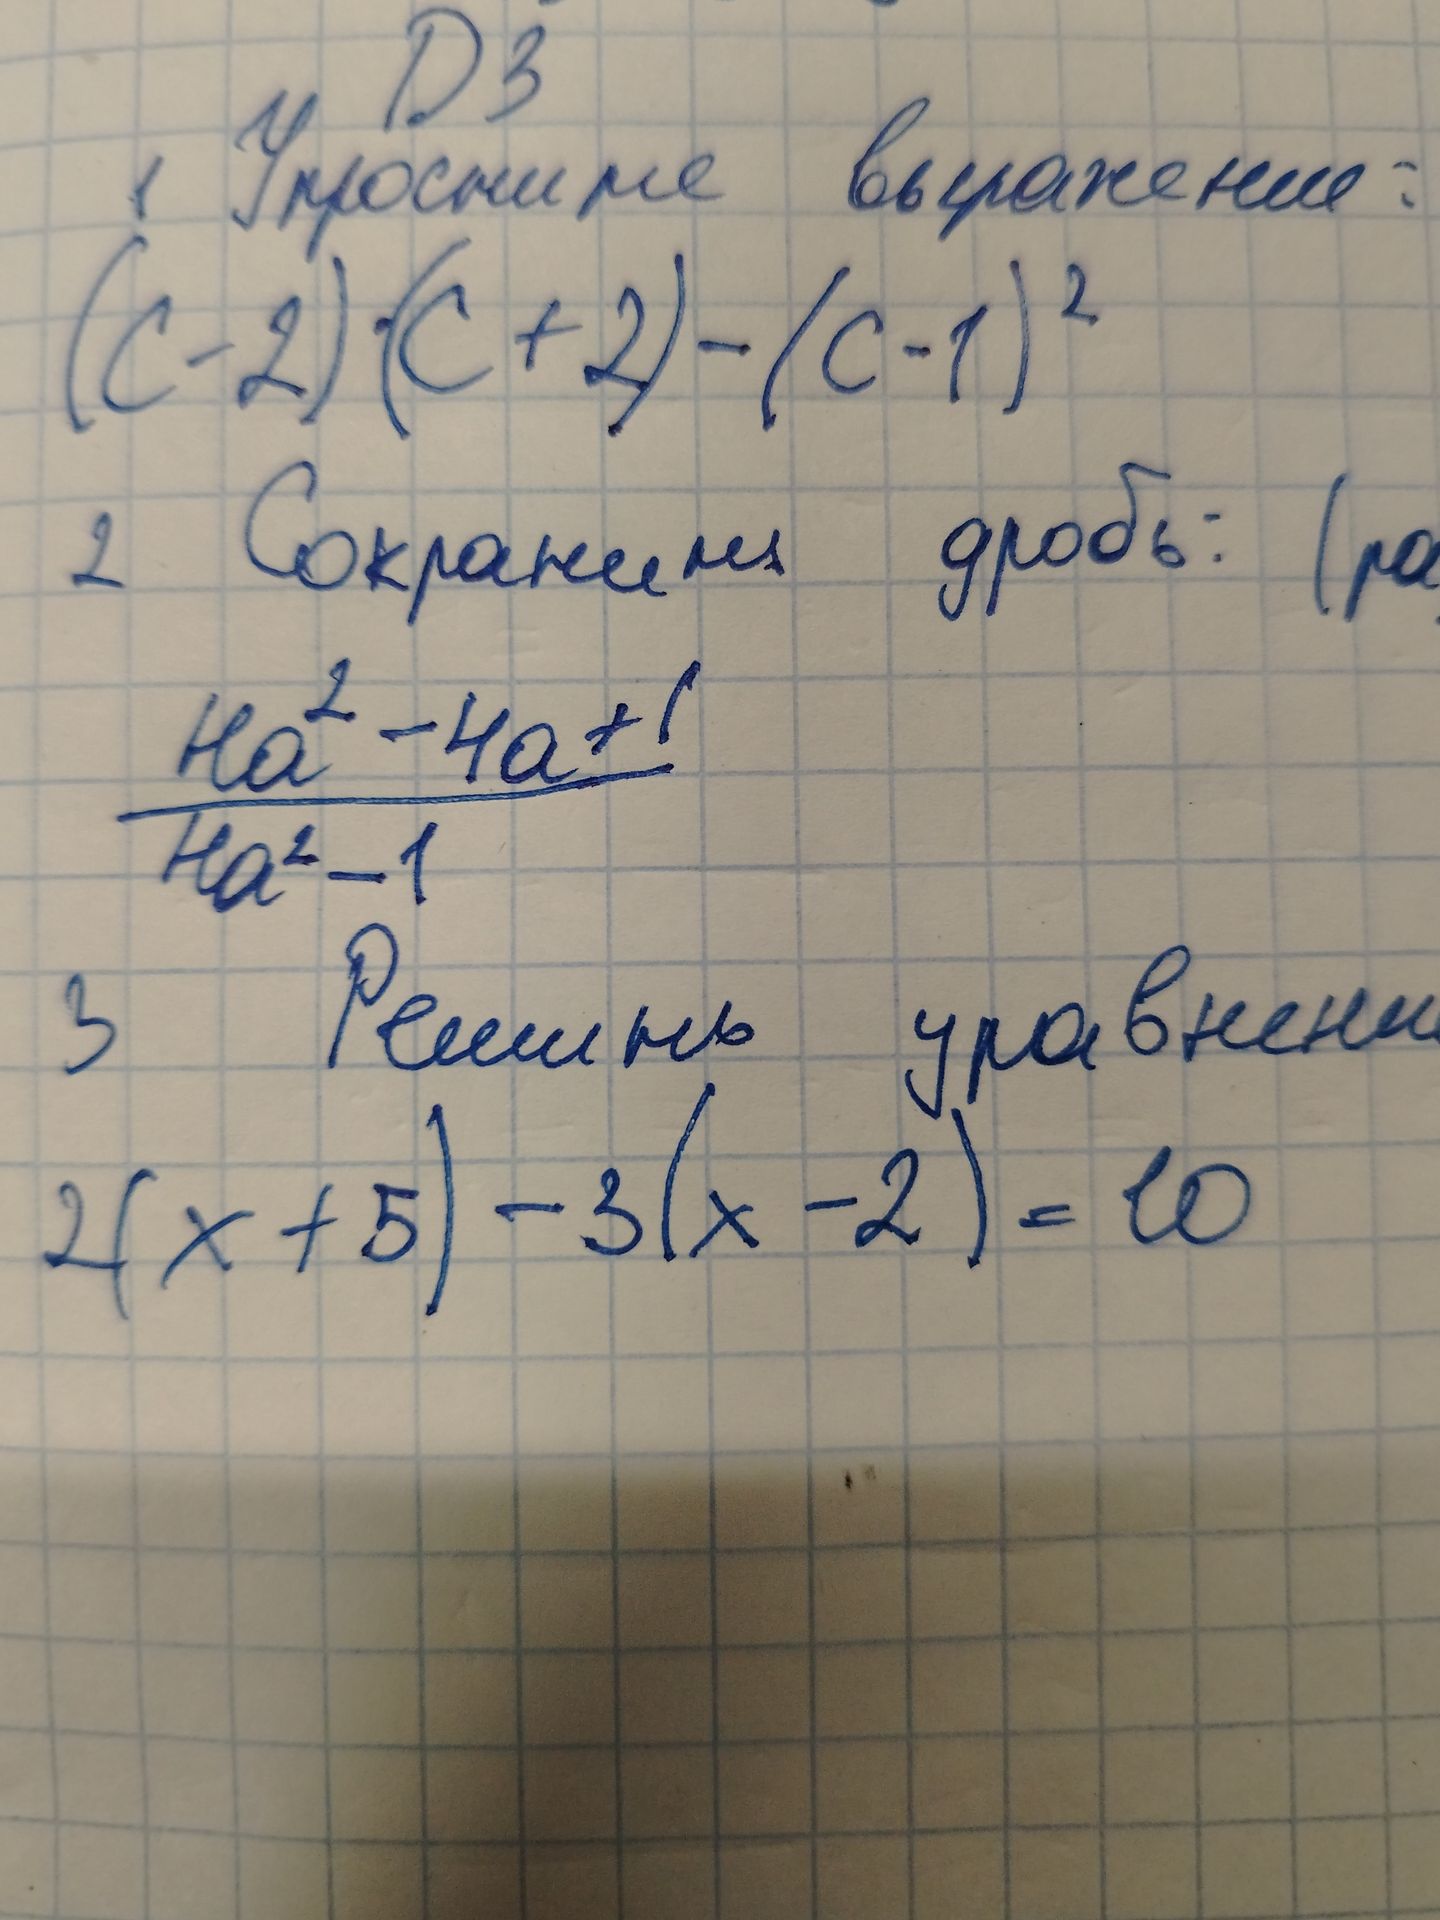 ДЗ
1 Упростите выражение:
(c-2)·(c+2)-(c-1)²
2 Сократить дробь: (ра
4a²-4a+1
4a²-1
3 Решить уравнени
2(x+5)-3(x-2)=10